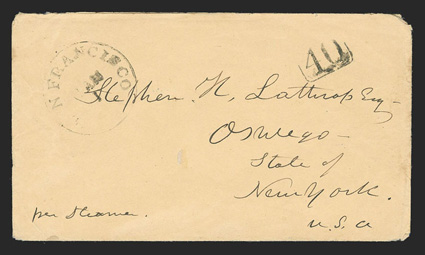 SAN FRANCISCO
JAN
1
40
Stephen N. Lathrop Esq-
Oswego-
State of
New York.
U.S.a
per Steamer.